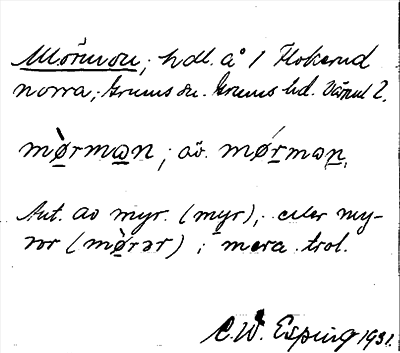 Mörmon; hdl. å 1 Flokerud
norra; Grums sn. Grums hd. Värml.
mø̀rmωn; äv. mǿrmωn.
Ant. av myr. (myr); eller my-
ror (mø̀rər); mera trol.
C. W. Esping 1931.